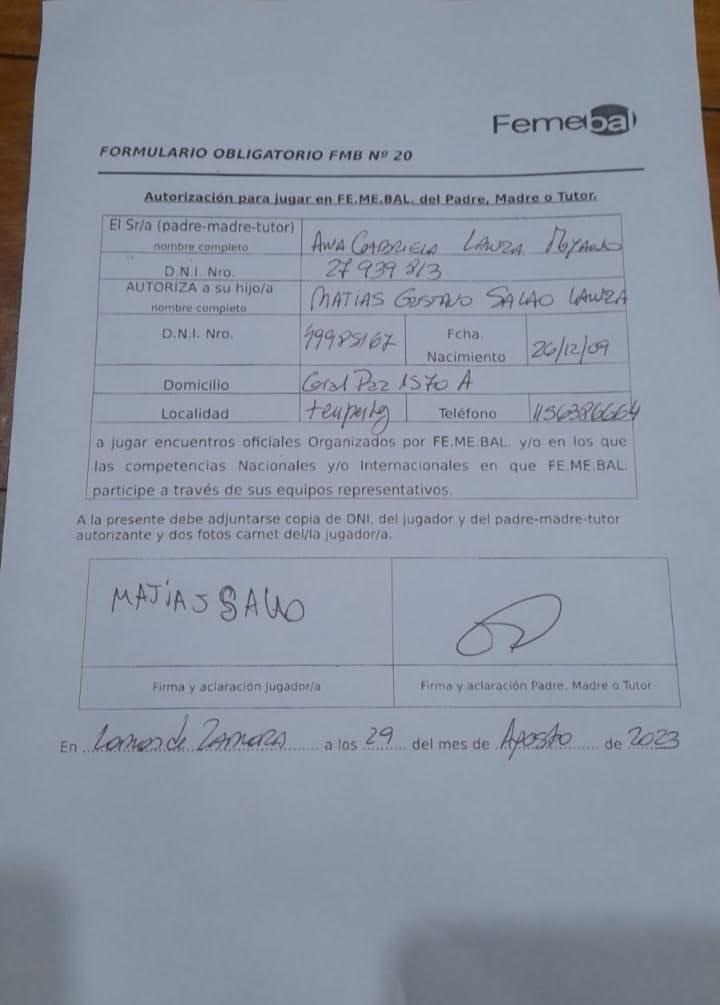 Femebal
FORMULARIO OBLIGATORIO FMB Nº 20
Autorización para jugar en FE.ME.BAL. del Padre, Madre o Tutor.
El Sr/a (padre-madre-tutor)
nombre completo
ANA GABRIELA LAUZA MOYANO
D.N.I. Nro. 27 939 813
AUTORIZA a su hijo/a
nombre completo
MATIAS GUSTAVO SALAO LAUZA
D.N.I. Nro. Fcha.
Nacimiento 26/12/09
Domicilio Gral Paz 1570 A
Localidad Teléfono 1156386664
a jugar encuentros oficiales Organizados por FE.ME.BAL. y/o en los que
las competencias Nacionales y/o Internacionales en que FE.ME.BAL.
participe a través de sus equipos representativos.
A la presente debe adjuntarse copia de DNI, del jugador y del padre-madre-tutor
autorizante y dos fotos carnet del/la jugador/a.
MATIAS SALAO
Firma y aclaración Jugador/a Firma y aclaración Padre, Madre o Tutor
En Lomas de Zamora a los 29 del mes de Agosto de 2023